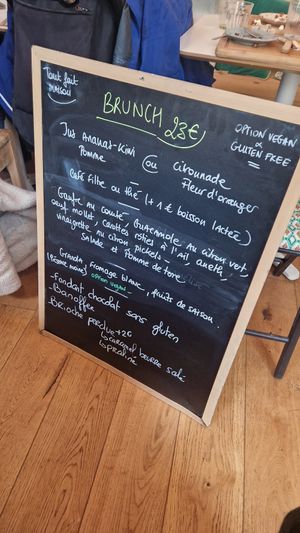 Tout fait
maison
BRUNCH 23€
OPTION VEGAN
&
GLUTEN FREE
Jus Ananas-Kiwi
Pomme
ou
Citronnade
Fleur d'oranger
Café filtre ou thé (+1€ boisson lactée)
Gaufre au comté, Guacamole au citron vert,
oeuf mollet, carottes rôties à l'ail, aneth,
vinaigrette au citron, pickels
Salade et Pomme de terre
Granola, fromage blanc, fruits de saison.
option vegan
-Fondant chocolat sans gluten
-Banoffee
-Brioche perdue +2€
↳ caramel beurre salé
↳ praliné